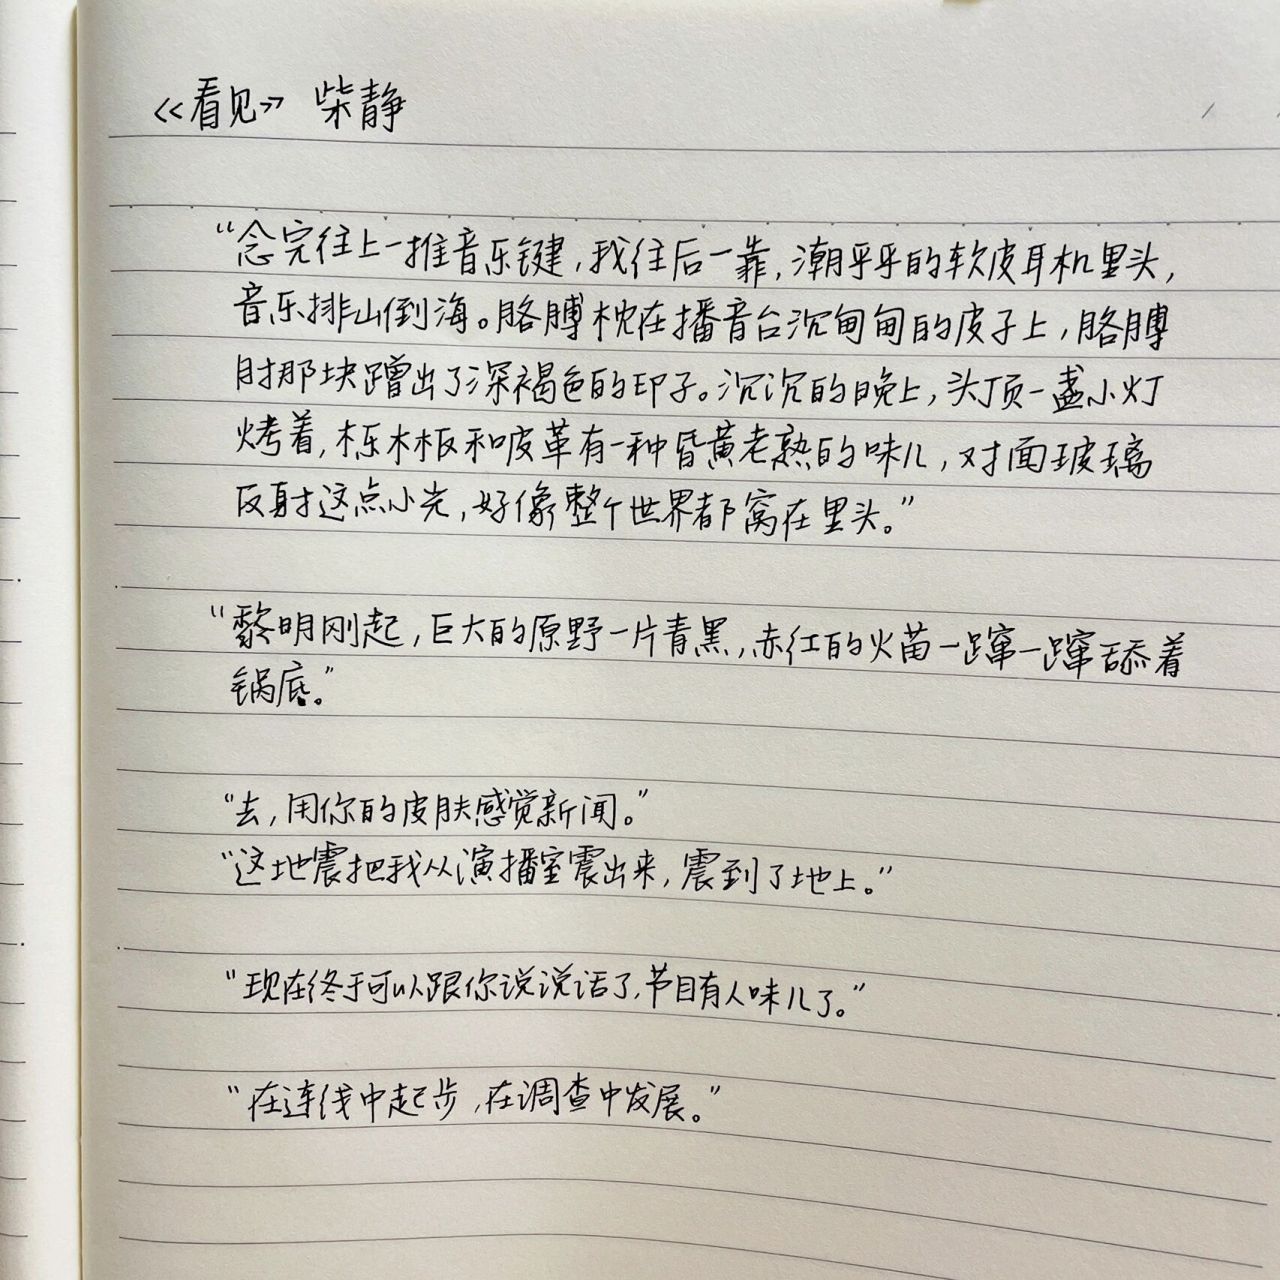 《看见》 柴静
“念完往上一推音乐键,我往后一靠,潮乎乎的软皮耳机里头,
音乐排山倒海。胳膊枕在播音台沉甸甸的皮子上,胳膊
肘那块蹭出了深褐色的印子。沉沉的晚上,头顶一盏小灯
烤着,栎木板和皮革有一种昏黄老熟的味儿,对面玻璃
反射这点小光,好像整个世界都窝在里头。”
“黎明刚起,巨大的原野一片青黑,赤红的火苗一蹿一蹿舔着
锅底。”
“去,用你的皮肤感觉新闻。”
“这地震把我从演播室震出来,震到了地上。”
“现在终于可以跟你说说话了,节目有人味儿了。”
“在连线中起步,在调查中发展。”